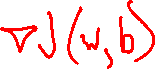 ∇J(w,b)